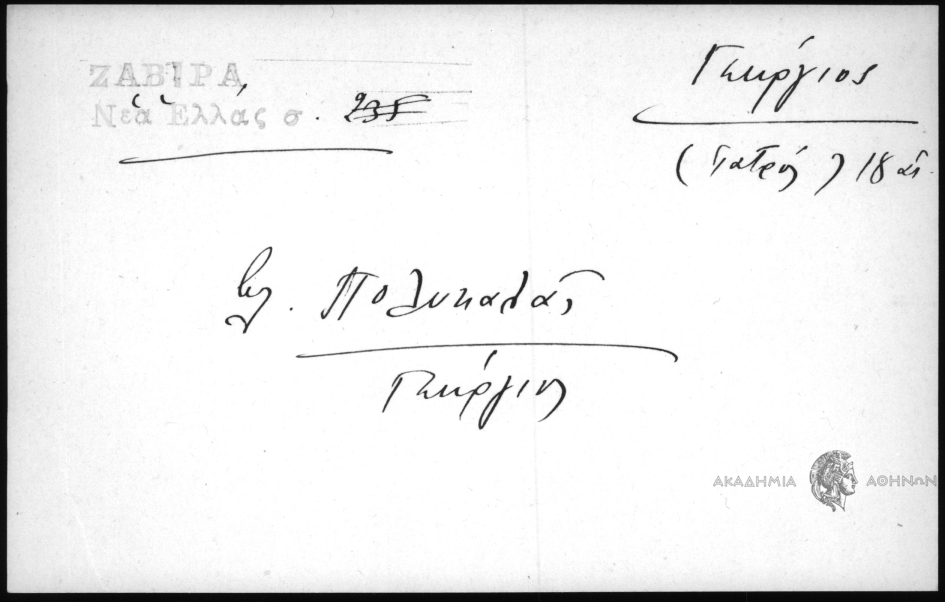 ΖΑΒΙΡΑ
Νέα Ἑλλάς σ. 235
Γεώργιος
(ἰατρός) 18 αἰ.
βλ. Πολυκαλᾶς
Γεώργιος
ΑΚΑΔΗΜΙΑ ΑΘΗΝΩΝ